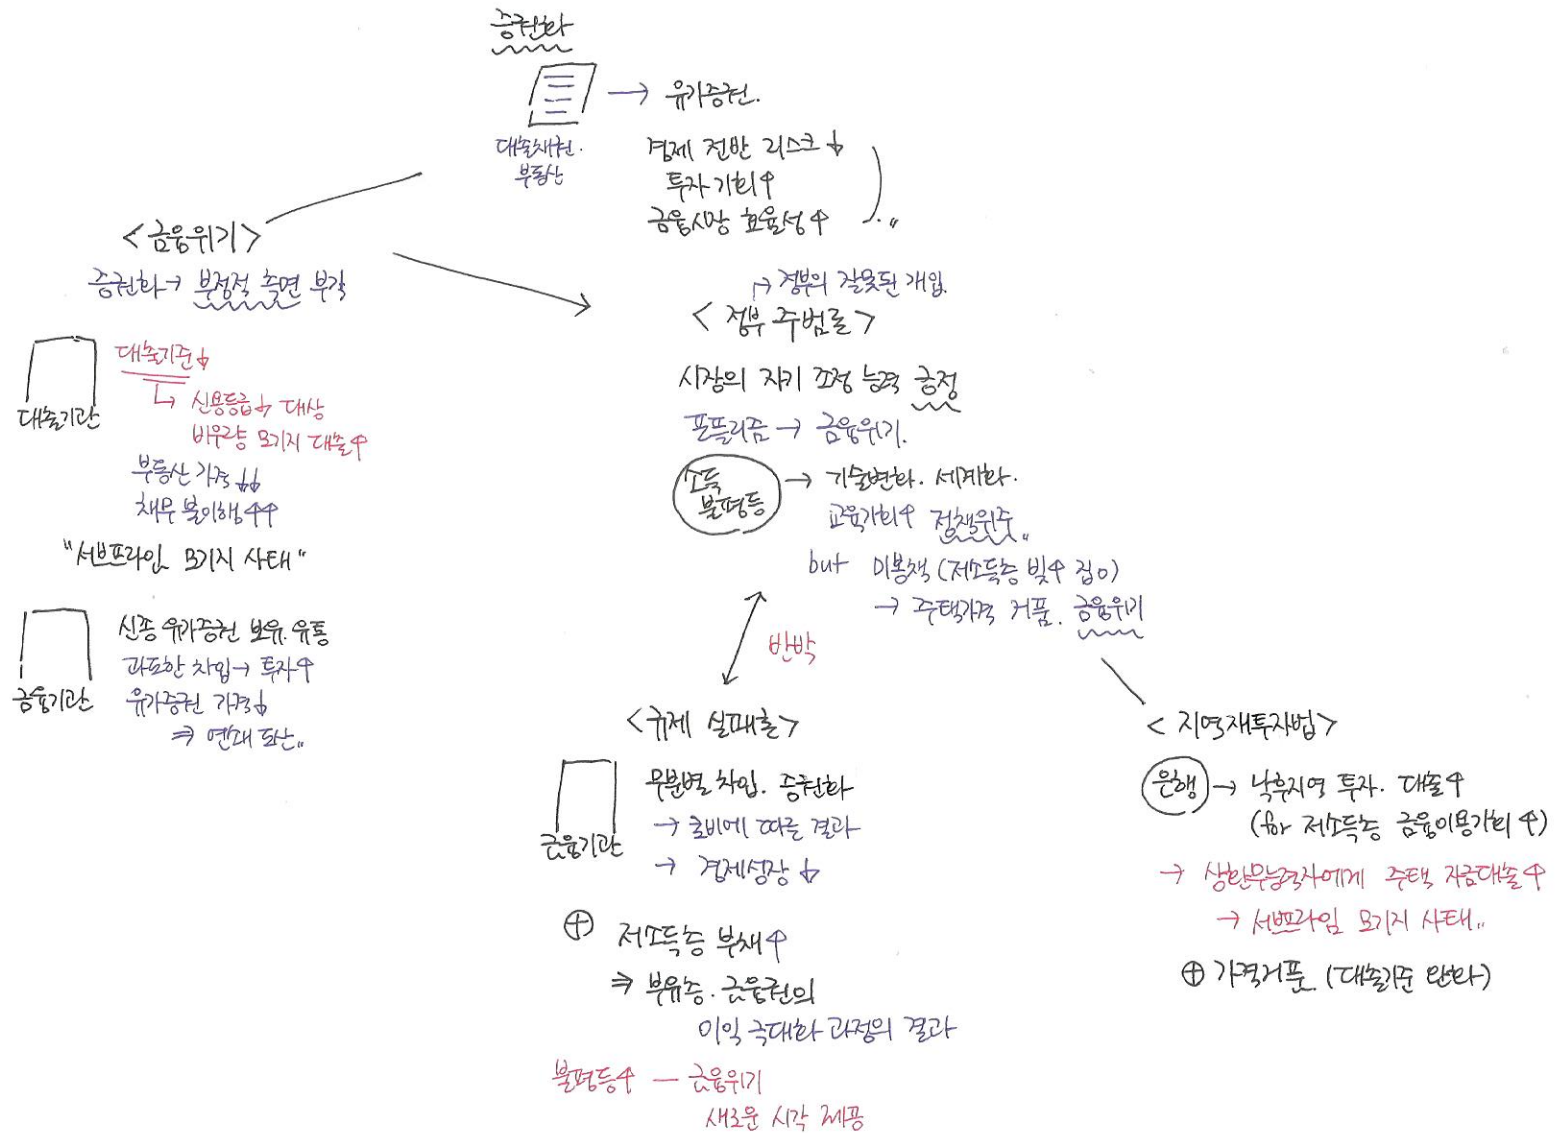 증권화
→ 유가증권.
대출채권.
부동산
경제 전반 리스크 ↓
투자 기회 ↑
금융시장 효율성 ↑
<금융위기>
증권화 → 부정적 측면 부각
대출기관
대출기준 ↓
↳ 신용등급 ↓ 대상
비우량 모기지 대출 ↑
부동산 가격 ↓↓
채무 불이행 ↑↑
"서브프라임 모기지 사태"
금융기관
신종 유가증권 보유. 유통
과도한 차입 → 투자 ↑
유가증권 가격 ↓
⇒ 연쇄 도산..
→ 정부의 잘못된 개입.
<정부 주범론>
시장의 자기 조정 능력 긍정
포퓰리즘 → 금융위기.
소득 불평등 → 기술변화. 세계화.
교육기회 ↑ 정책위주..
but 미봉책 (저소득층 빚 ↑ 집 o)
→ 주택가격 거품. 금융위기
반박
<규제 실패론>
금융기관
무분별 차입. 증권화
→ 로비에 따른 결과
→ 경제성장 ↓
⊕ 저소득층 부채 ↑
⇒ 부유층. 금융권의
이익 극대화 과정의 결과
불평등 ↑ — 금융위기
새로운 시각 제공
<지역재투자법>
은행 → 낙후지역 투자. 대출 ↑
(for 저소득층 금융이용기회 ↑)
→ 상환무능력자에게 주택 자금대출 ↑
→ 서브프라임 모기지 사태..
⊕ 가격거품. (대출기준 완화)